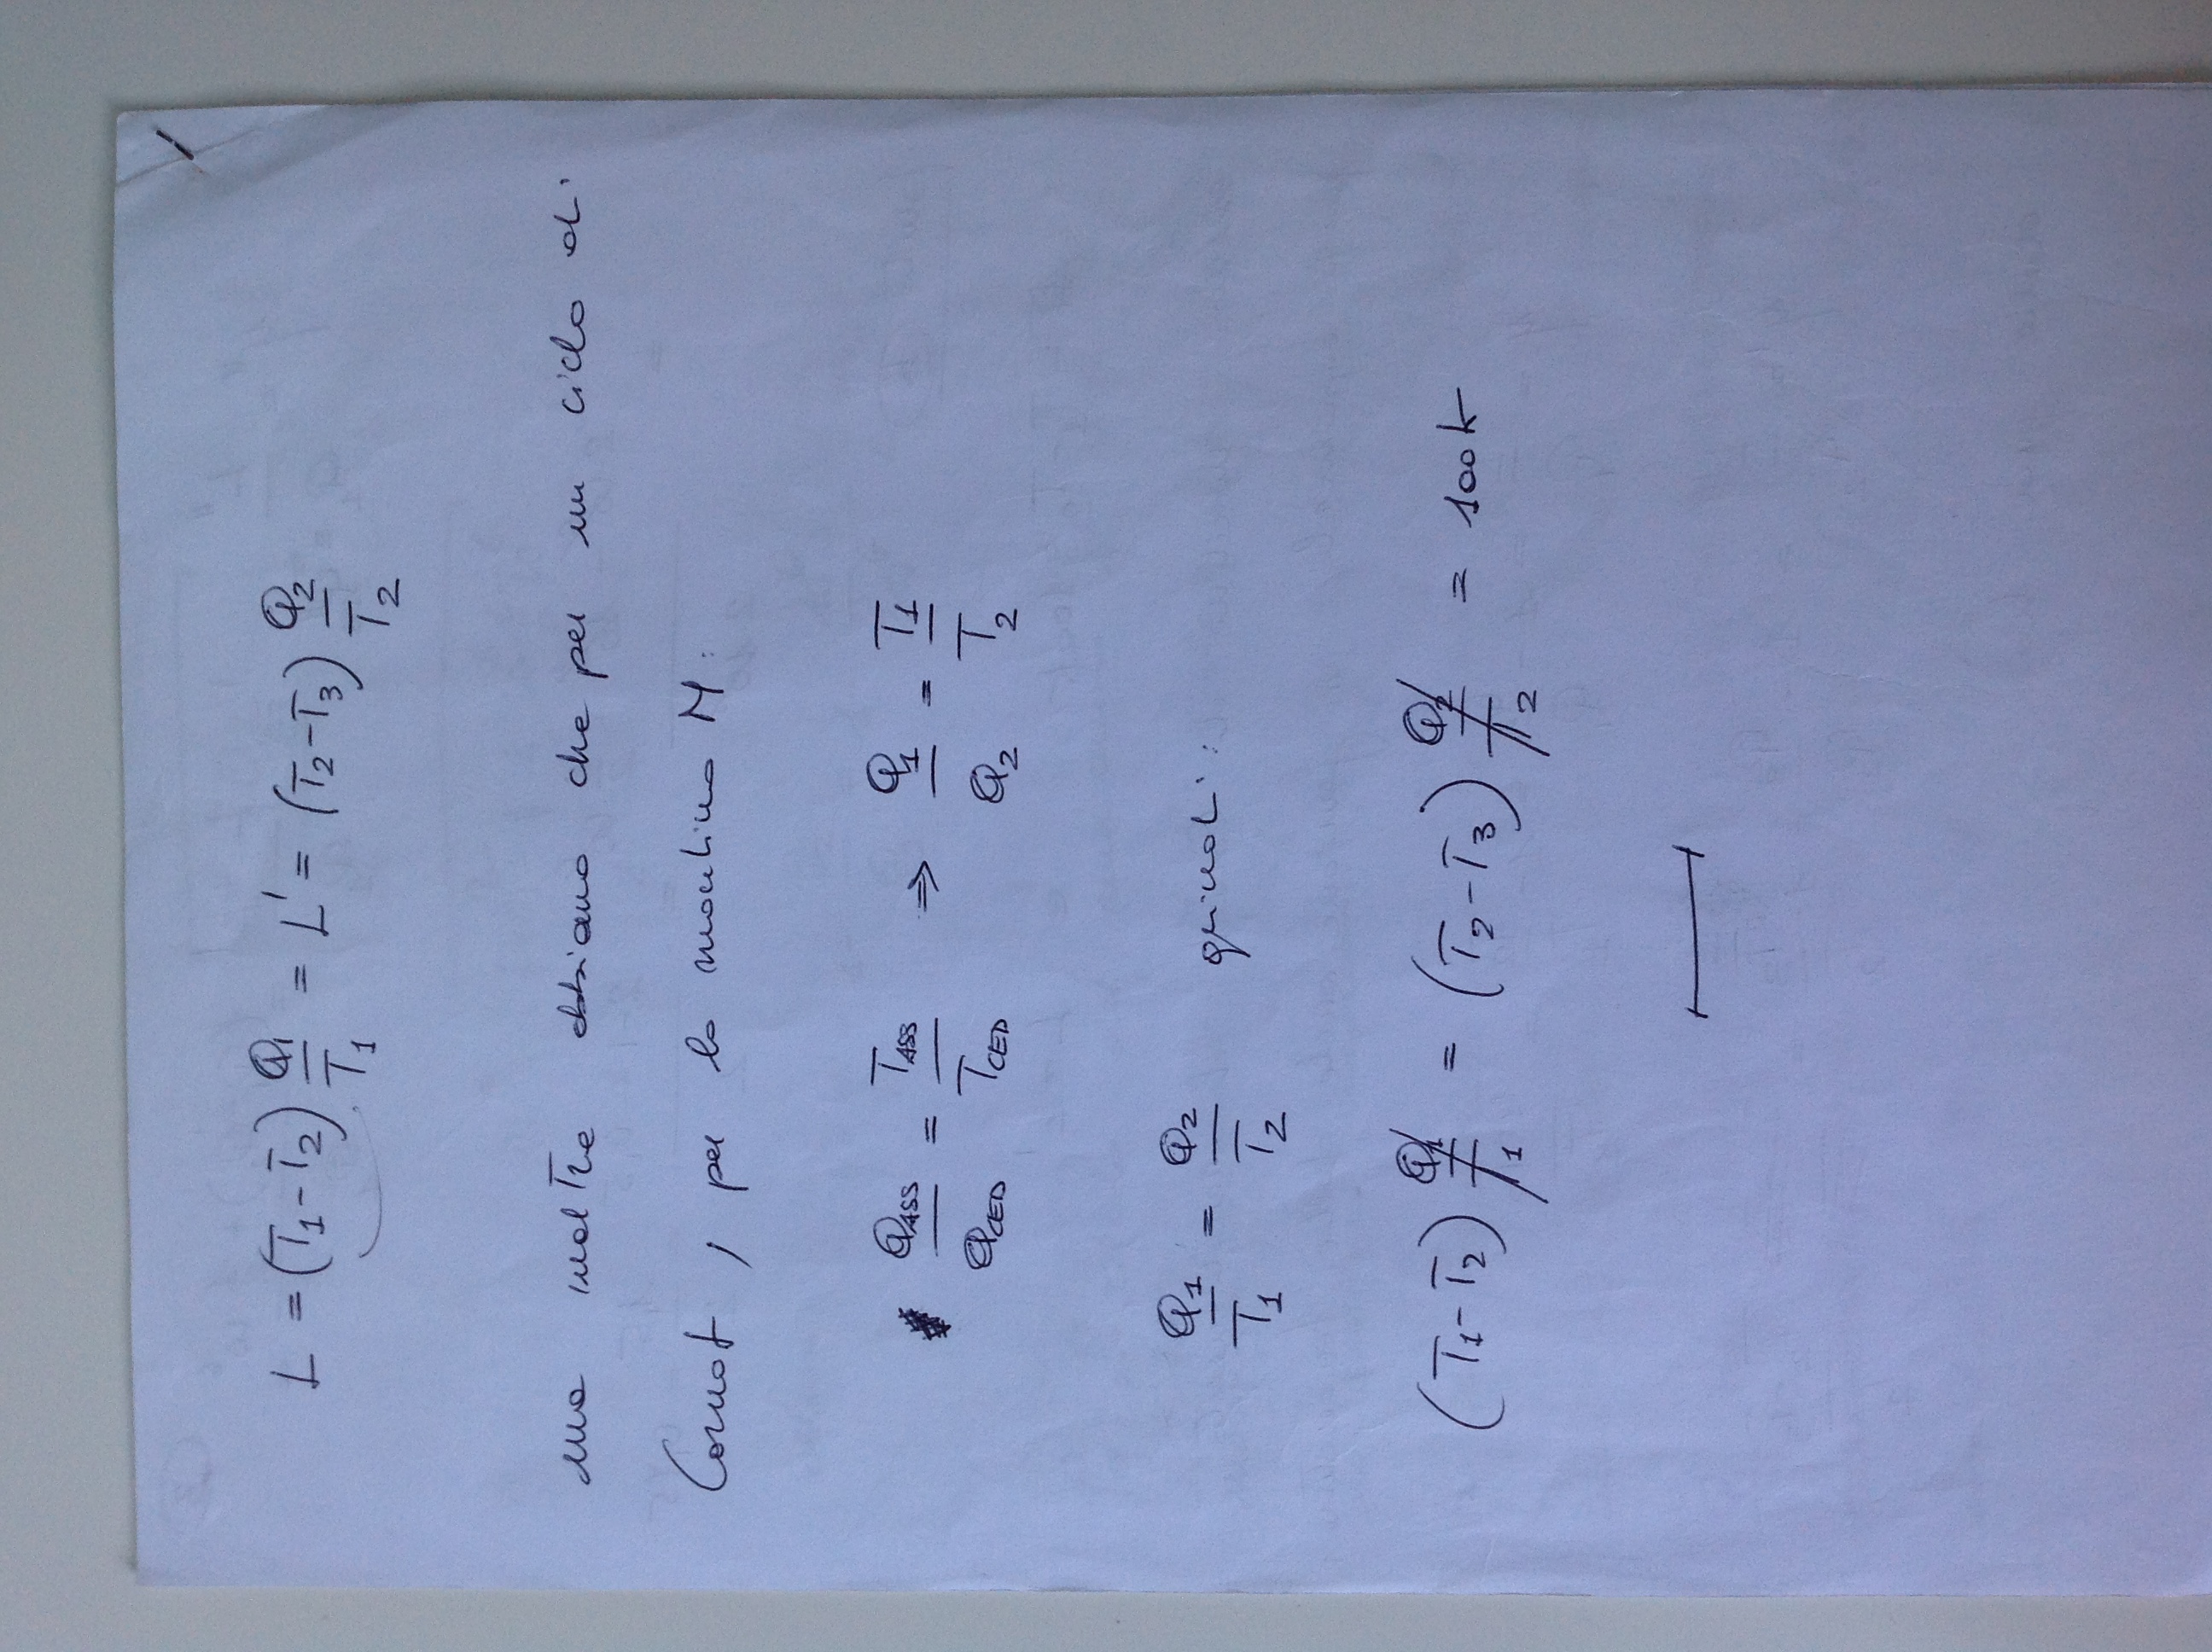 L = (T₁-T₂) Q₁/T₁ = L' = (T₂-T₃) Q₂/T₂
ma inoltre abbiamo che per un ciclo di
Carnot, per la macchina M:
Q_ASS/Q_CED = T_ASS/T_CED ⇒ Q₁/Q₂ = T₁/T₂
Q₁/T₁ = Q₂/T₂ quindi:
(T₁-T₂) Q₁/T₁ = (T₂-T₃) Q₂/T₂ = 100K